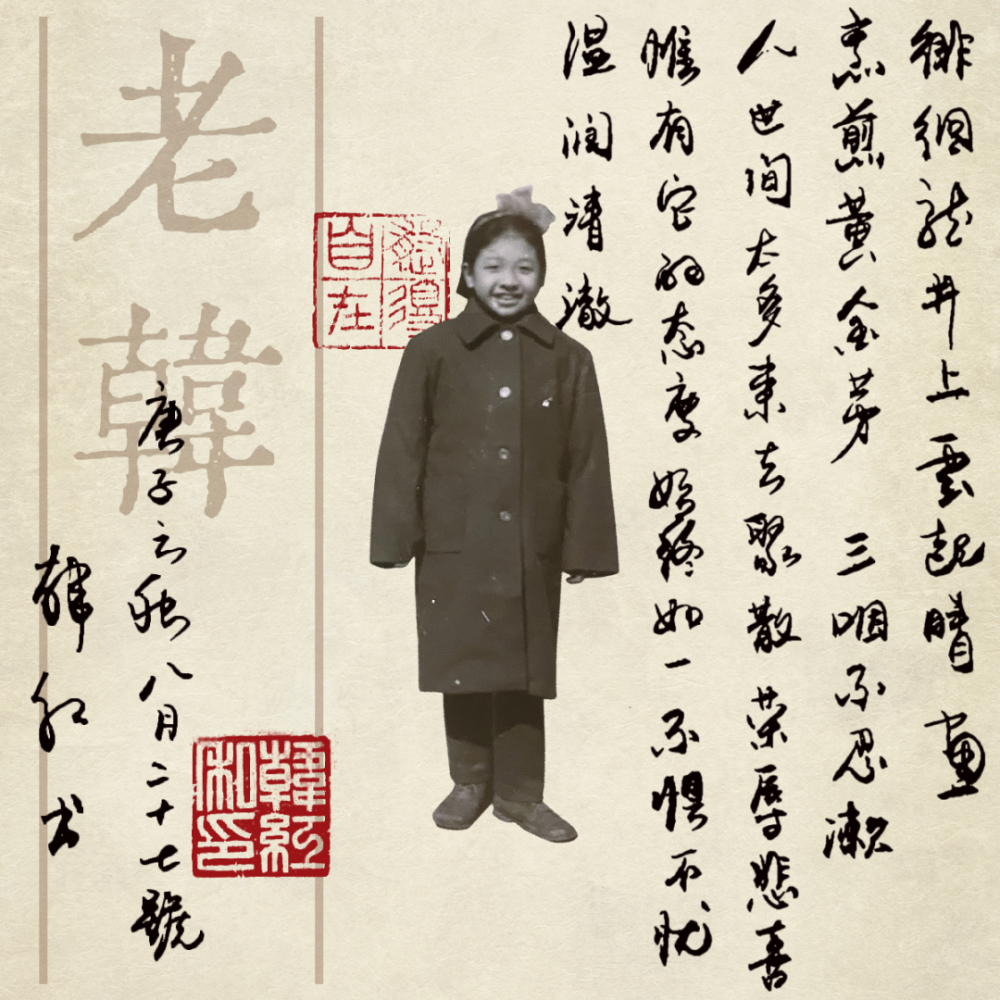 徘徊龙井上雲起晴畫
烹煎黄金芽 三咽不忍漱
人世间太多来去聚散荣辱悲喜
惟有它的态度始終如一不惧不忧
温润清澈
得自在
老韓
庚子之秋八月二十七號
韓红书
韓紅私印